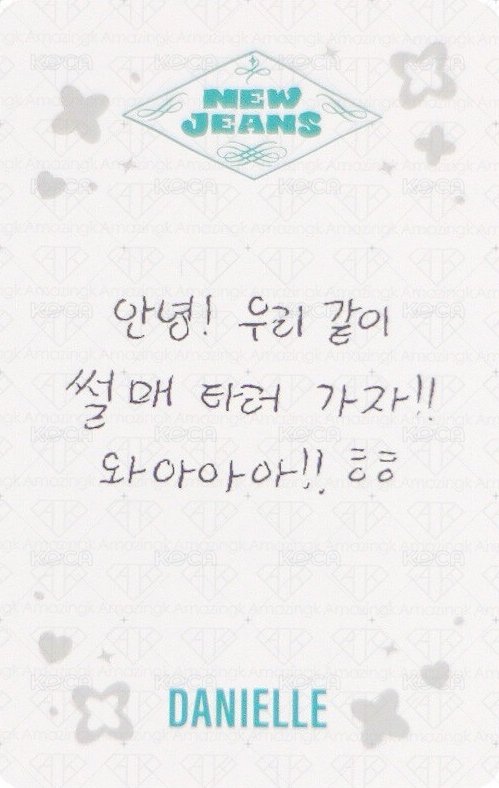 NEW
JEANS
안녕! 우리 같이
썰매 타러 가자!!
와아아아!! ㅎㅎ
DANIELLE
KOCA
Amazingk